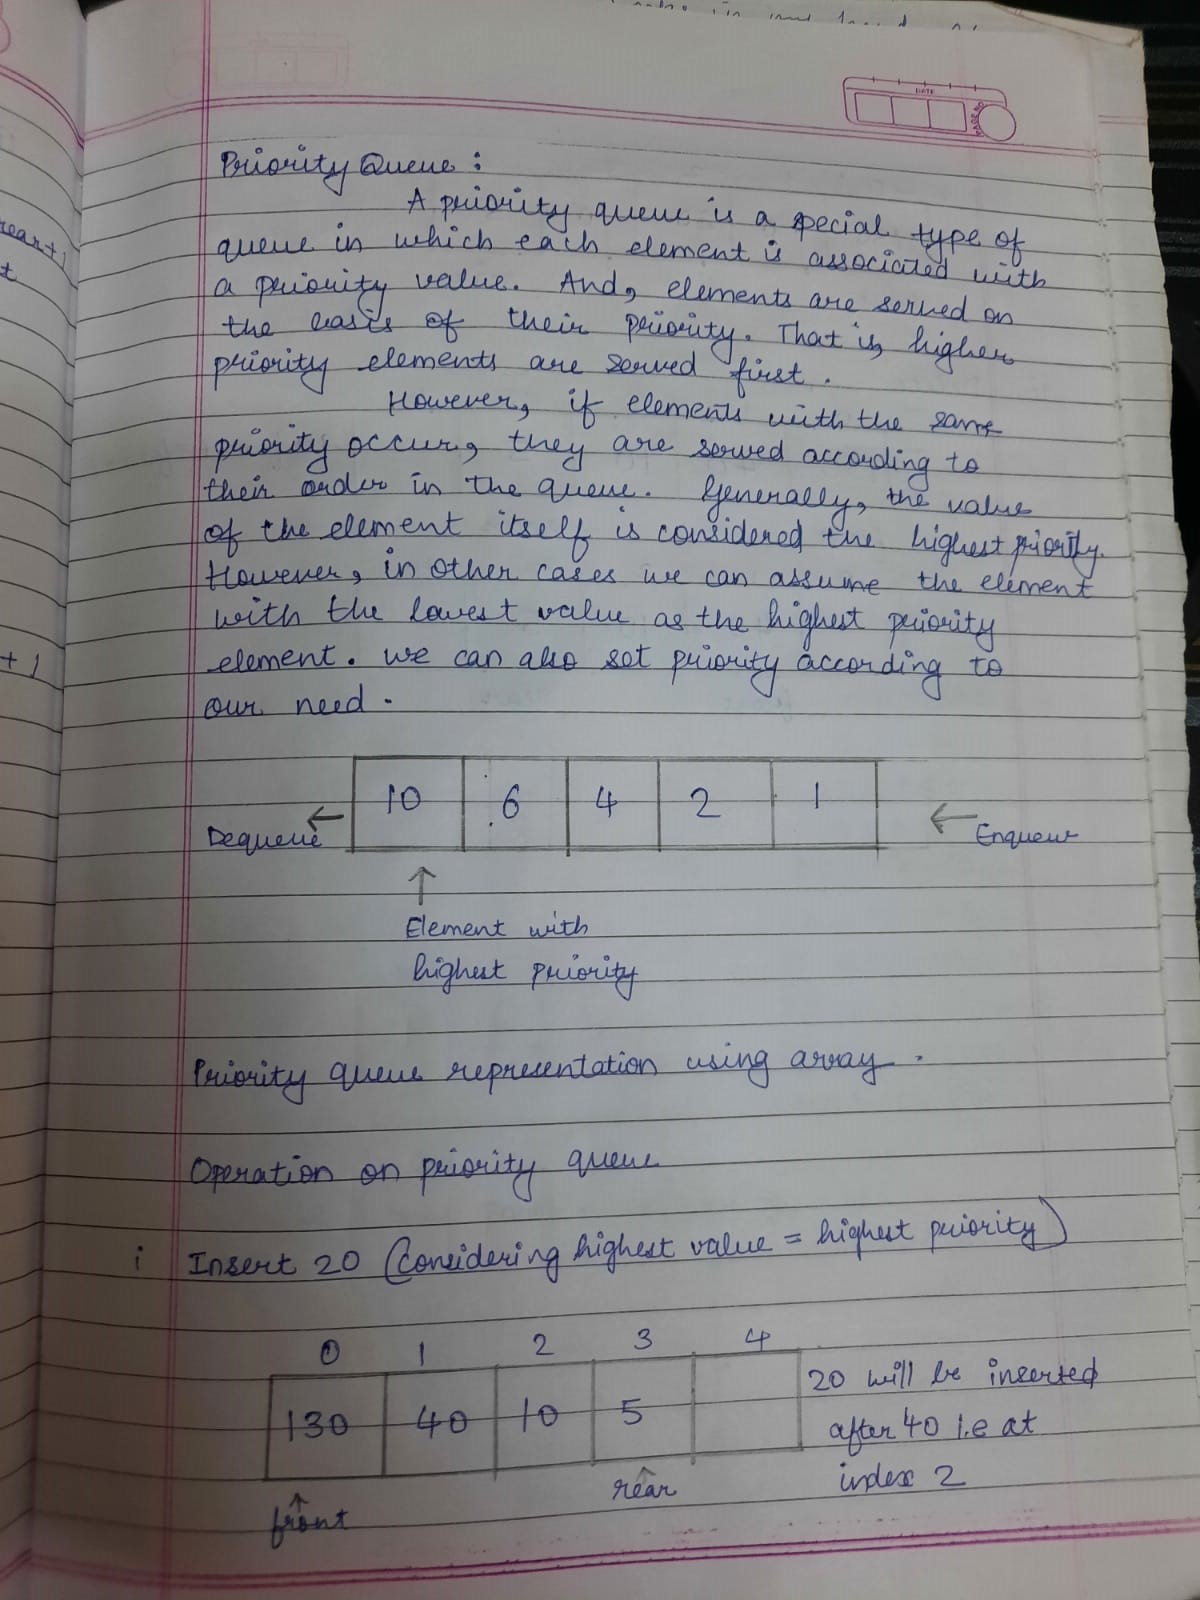 DATE
PAGE NO
rear+1
t
+1
Priority Queue :
A priority queue is a special type of
queue in which each element is associated with
a priority value. And, elements are served on
the basis of their priority. That is, higher
priority elements are served first.
However, if elements with the same
priority occur, they are served according to
their order in the queue. Generally, the value
of the element itself is considered the highest priority.
However, in other cases we can assume the element
with the lowest value as the highest priority
element. we can also set priority according to
our need.
10 6 4 2 1
Dequeue ← ← Enqueue
↑
Element with
highest priority
Priority queue representation using array.
Operation on priority queue
i Insert 20 (Considering highest value = highest priority)
0 1 2 3 4
130 40 10 5
20 will be inserted
after 40 i.e at
index 2
↑ ↑
front rear